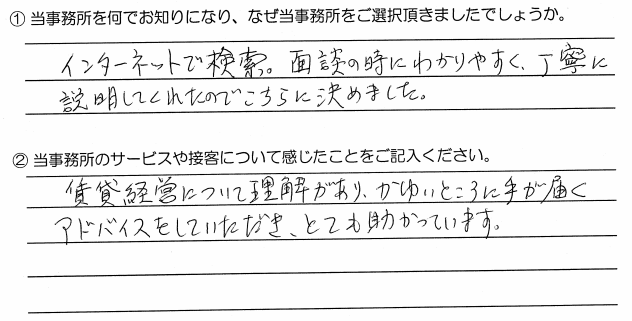 ① 当事務所を何でお知りになり、なぜ当事務所をご選択頂きましたでしょうか。
インターネットで検索。面談の時にわかりやすく、丁寧に
説明してくれたのでこちらに決めました。
② 当事務所のサービスや接客について感じたことをご記入ください。
賃貸経営について理解があり、かゆいところに手が届く
アドバイスをしていただき、とても助かっています。